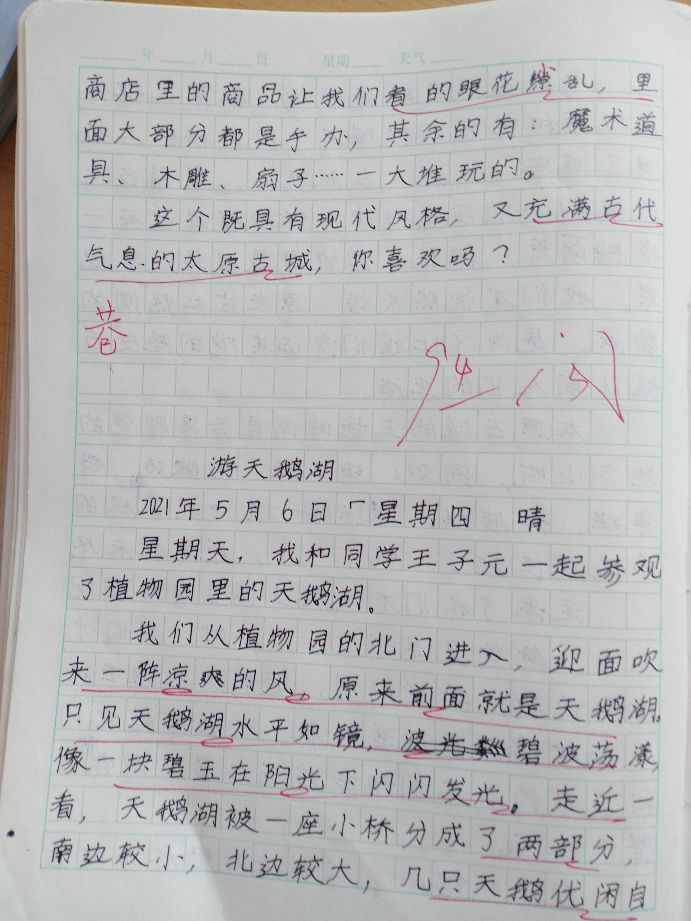 年 月 日 星期 天气
商店里的商品让我们看的眼花缭乱，里
面大部分都是手办，其余的有：魔术道
具、木雕、扇子……一大堆玩的。
这个既具有现代风格，又充满古代
气息的太原古城，你喜欢吗？
游天鹅湖
2021年5月6日 星期四 晴
星期天，我和同学王子元一起参观
了植物园里的天鹅湖。
我们从植物园的北门进入，迎面吹
来一阵凉爽的风。原来前面就是天鹅湖。
只见天鹅湖水平如镜，碧波荡漾，
像一块碧玉在阳光下闪闪发光。走近一
看，天鹅湖被一座小桥分成了两部分，
南边较小，北边较大，几只天鹅优闲自